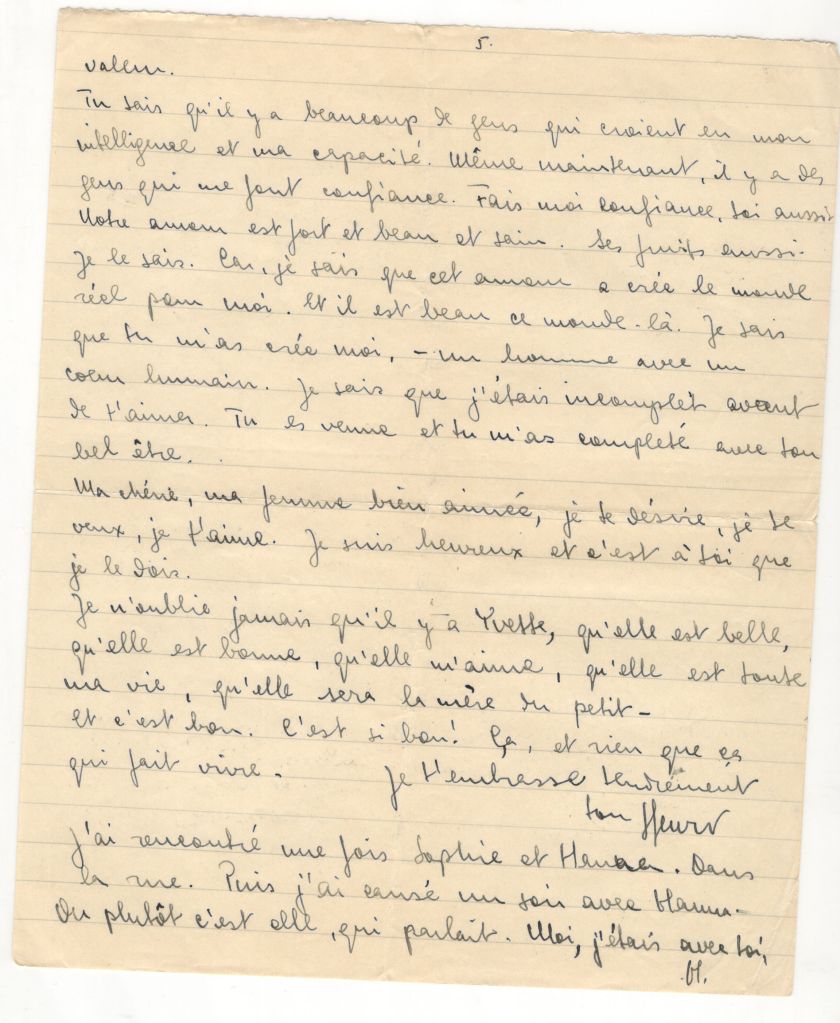 5.
valeur.
Tu sais qu'il y a beaucoup de gens qui croient en mon
intelligence et ma capacité. Même maintenant, il y a des
gens qui me font confiance. Fais moi confiance, toi aussi.
Notre amour est fort et beau et sain. Ses fruits aussi.
Je le sais. Car, je sais que cet amour a crée le monde
réel pour moi. Et il est beau ce monde-là. Je sais
que tu m'as crée moi, – un homme avec un
coeur humain. Je sais que j'étais incomplet avant
de t'aimer. Tu es venue et tu m'as completé avec ton
bel être.
Ma chérie, ma femme bien aimée, je te désire, je te
veux, je t'aime. Je suis heureux et c'est à toi que
je le dois.
Je n'oublie jamais qu'il y a Yvette, qu'elle est belle,
qu'elle est bonne, qu'elle m'aime, qu'elle est toute
ma vie, qu'elle sera la mère du petit –
Et c'est bon. C'est si bon! Ça, et rien que ça
qui fait vivre. Je t'embrasse tendrement
ton Henri
J'ai rencontré une fois Sophie et Hanna. Dans
la rue. Puis j'ai causé un soir avec Hanna.
Ou plutôt c'est elle, qui parlait. Moi, j'étais avec toi,
H.